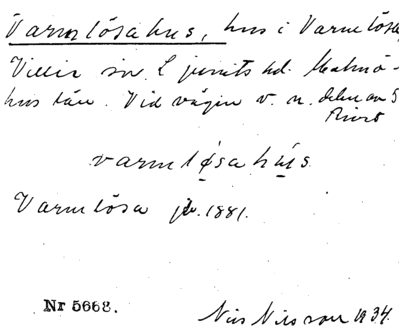 Varmlösahus, hus i Varmlösa,
Villie sn. Ljunits hd. Malmö-
hus län. Vid vägen v. n. delen av S
varmlösahús.
Varmlösa jb. 1881.
Nr 5663.
Nils Nilsson 1934.